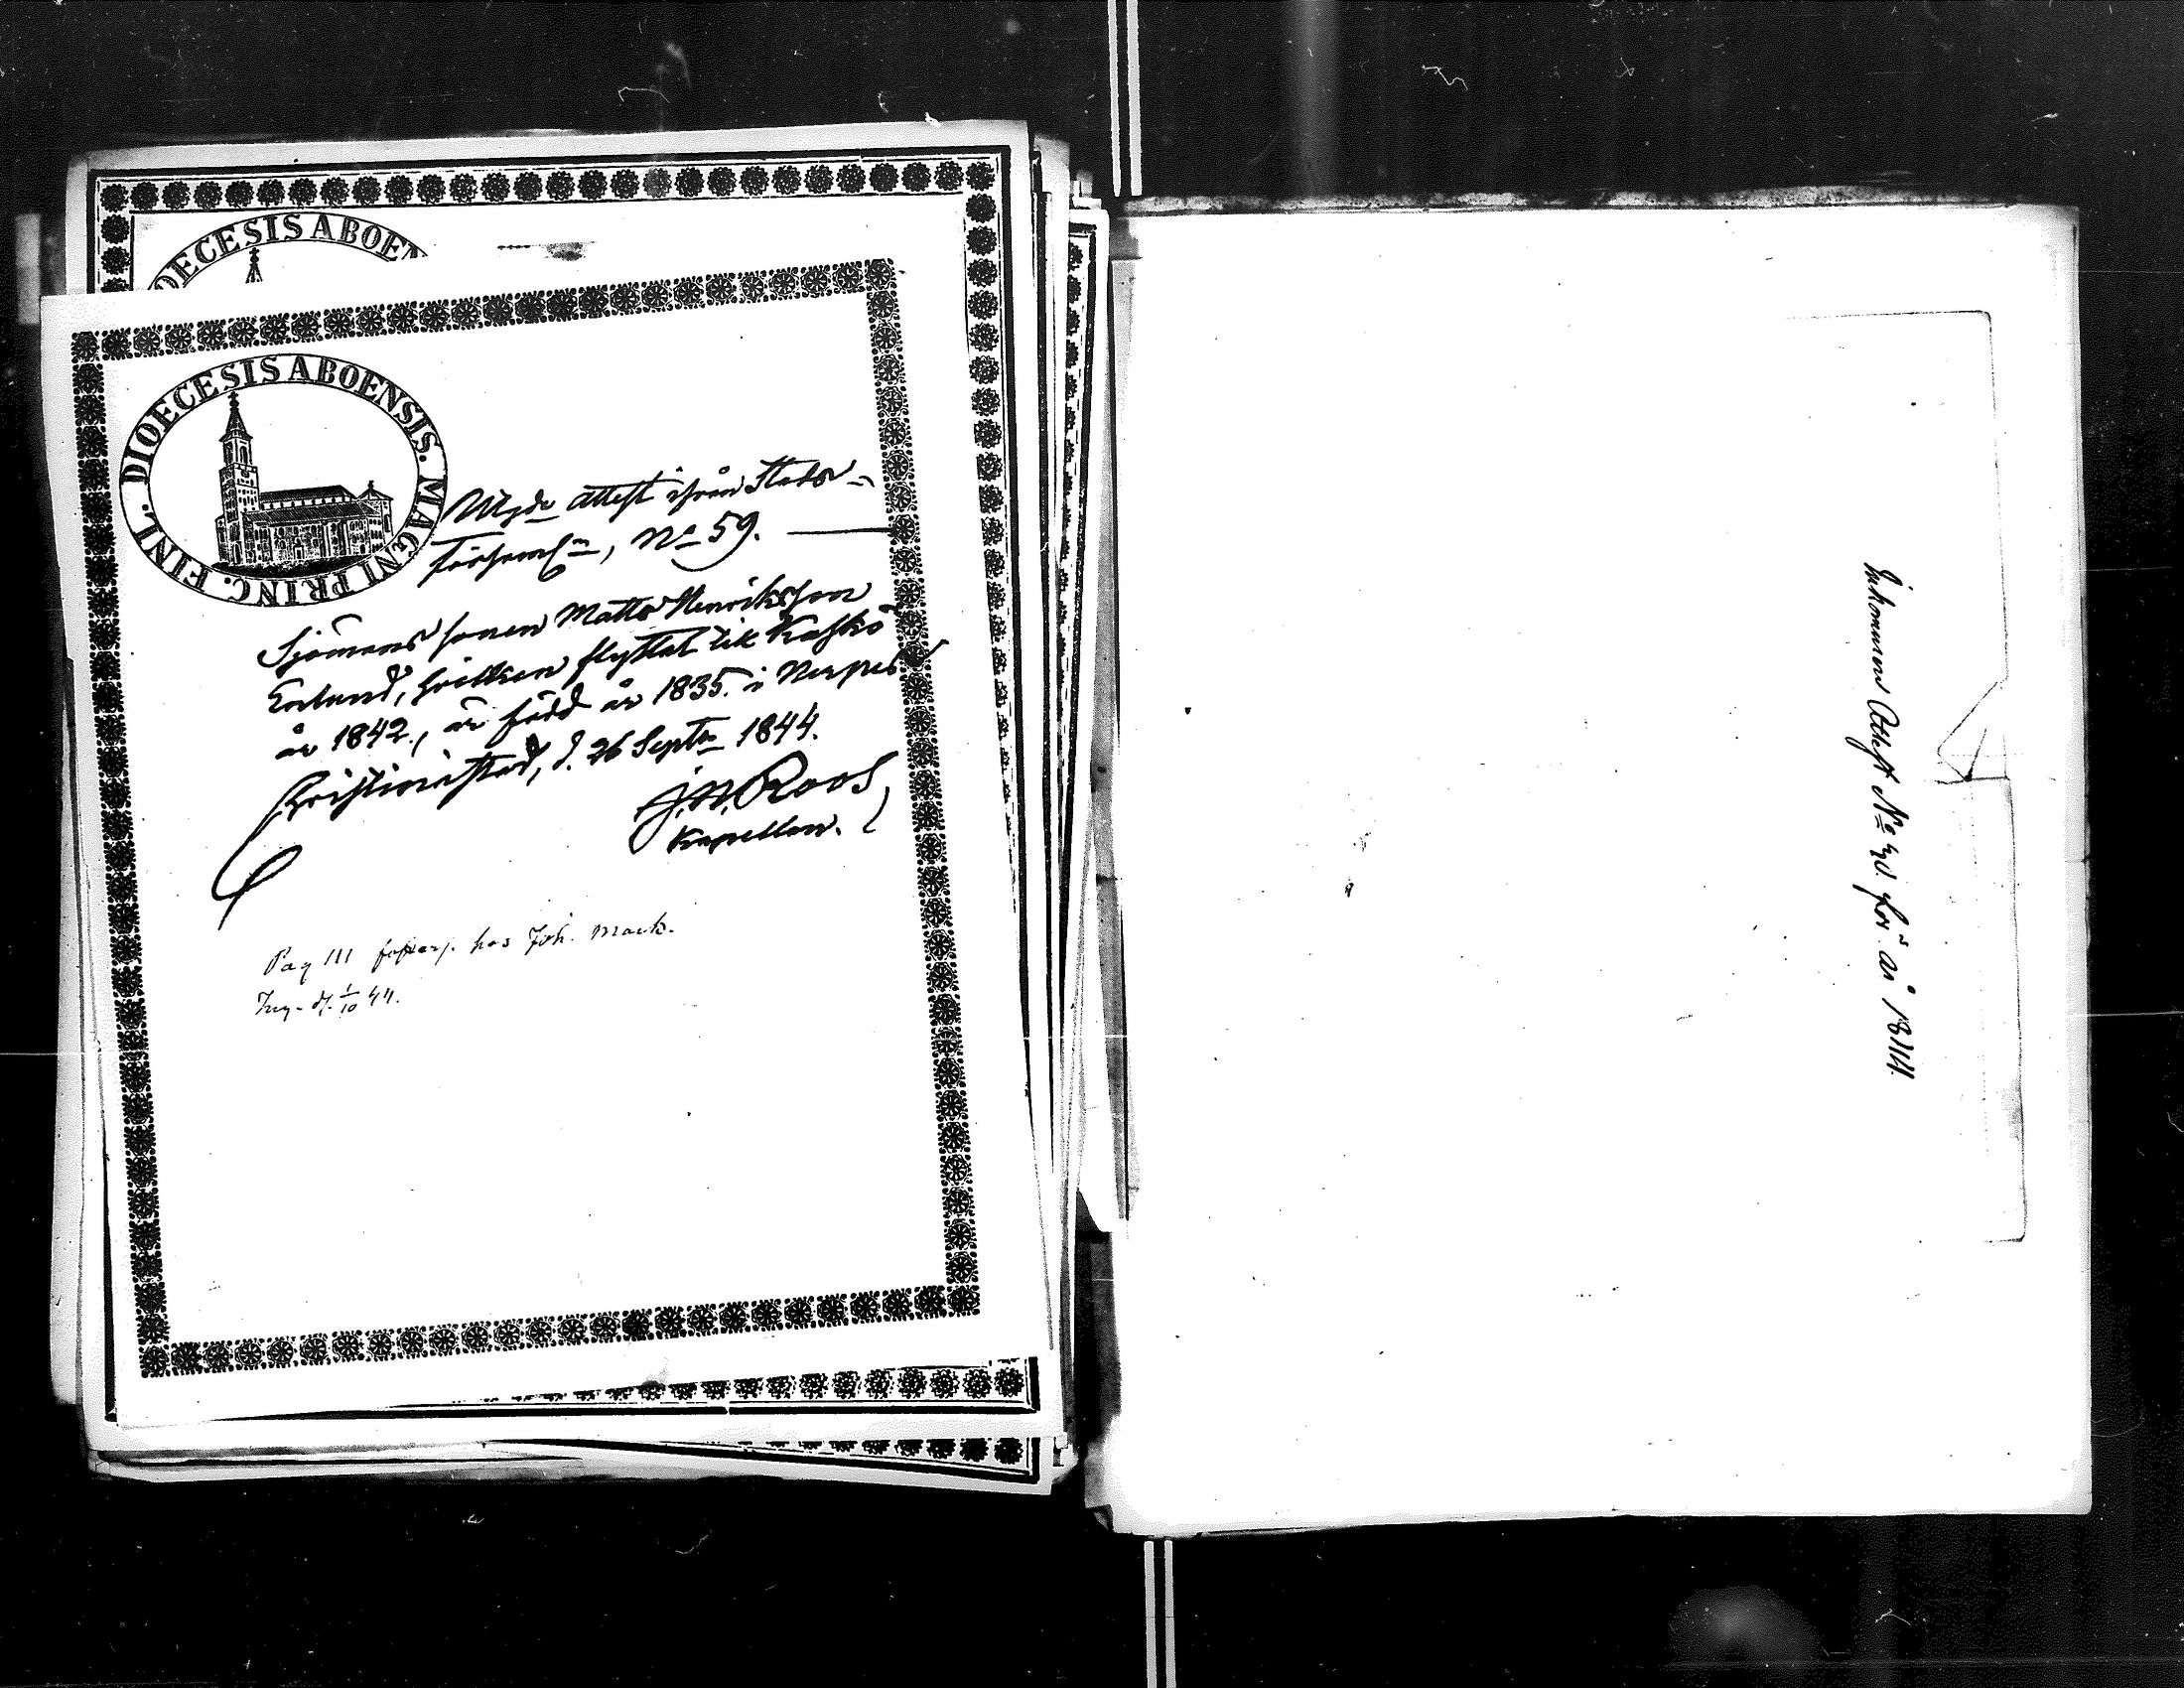 DIOECESIS ABOEN
DIOECESIS ABOENSIS. MAGNI PRINC. FINL.
Utgde attest ifrån Stads-
församln, No 59.
Sjömans sonen Matts Henriksson
Erlund, hvilken flyttat till Kaskö
år 1842, är född år 1835. i Nerpes
Christinestad, d. 26 Septr 1844.
J. N. Roos,
Kapellan.
Pag 111 hos Joh. Mack.
Ing. d. 1/10 44.
Inkommen Attest No för år 1844.